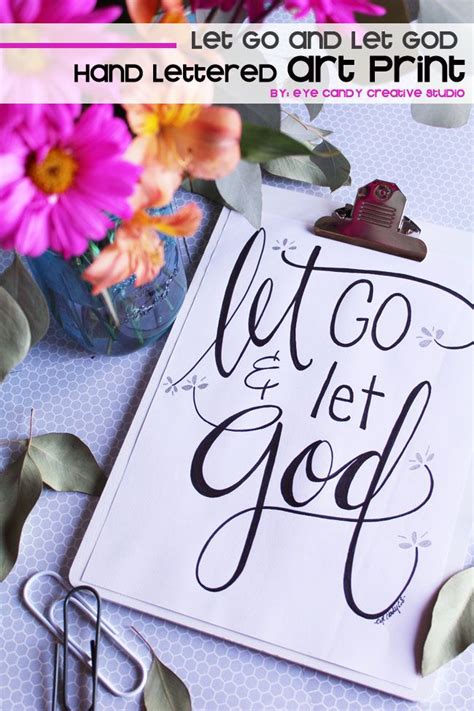 Let Go and Let God
Hand Lettered Art Print
By: Eye Candy Creative Studio
let GO
& let
God